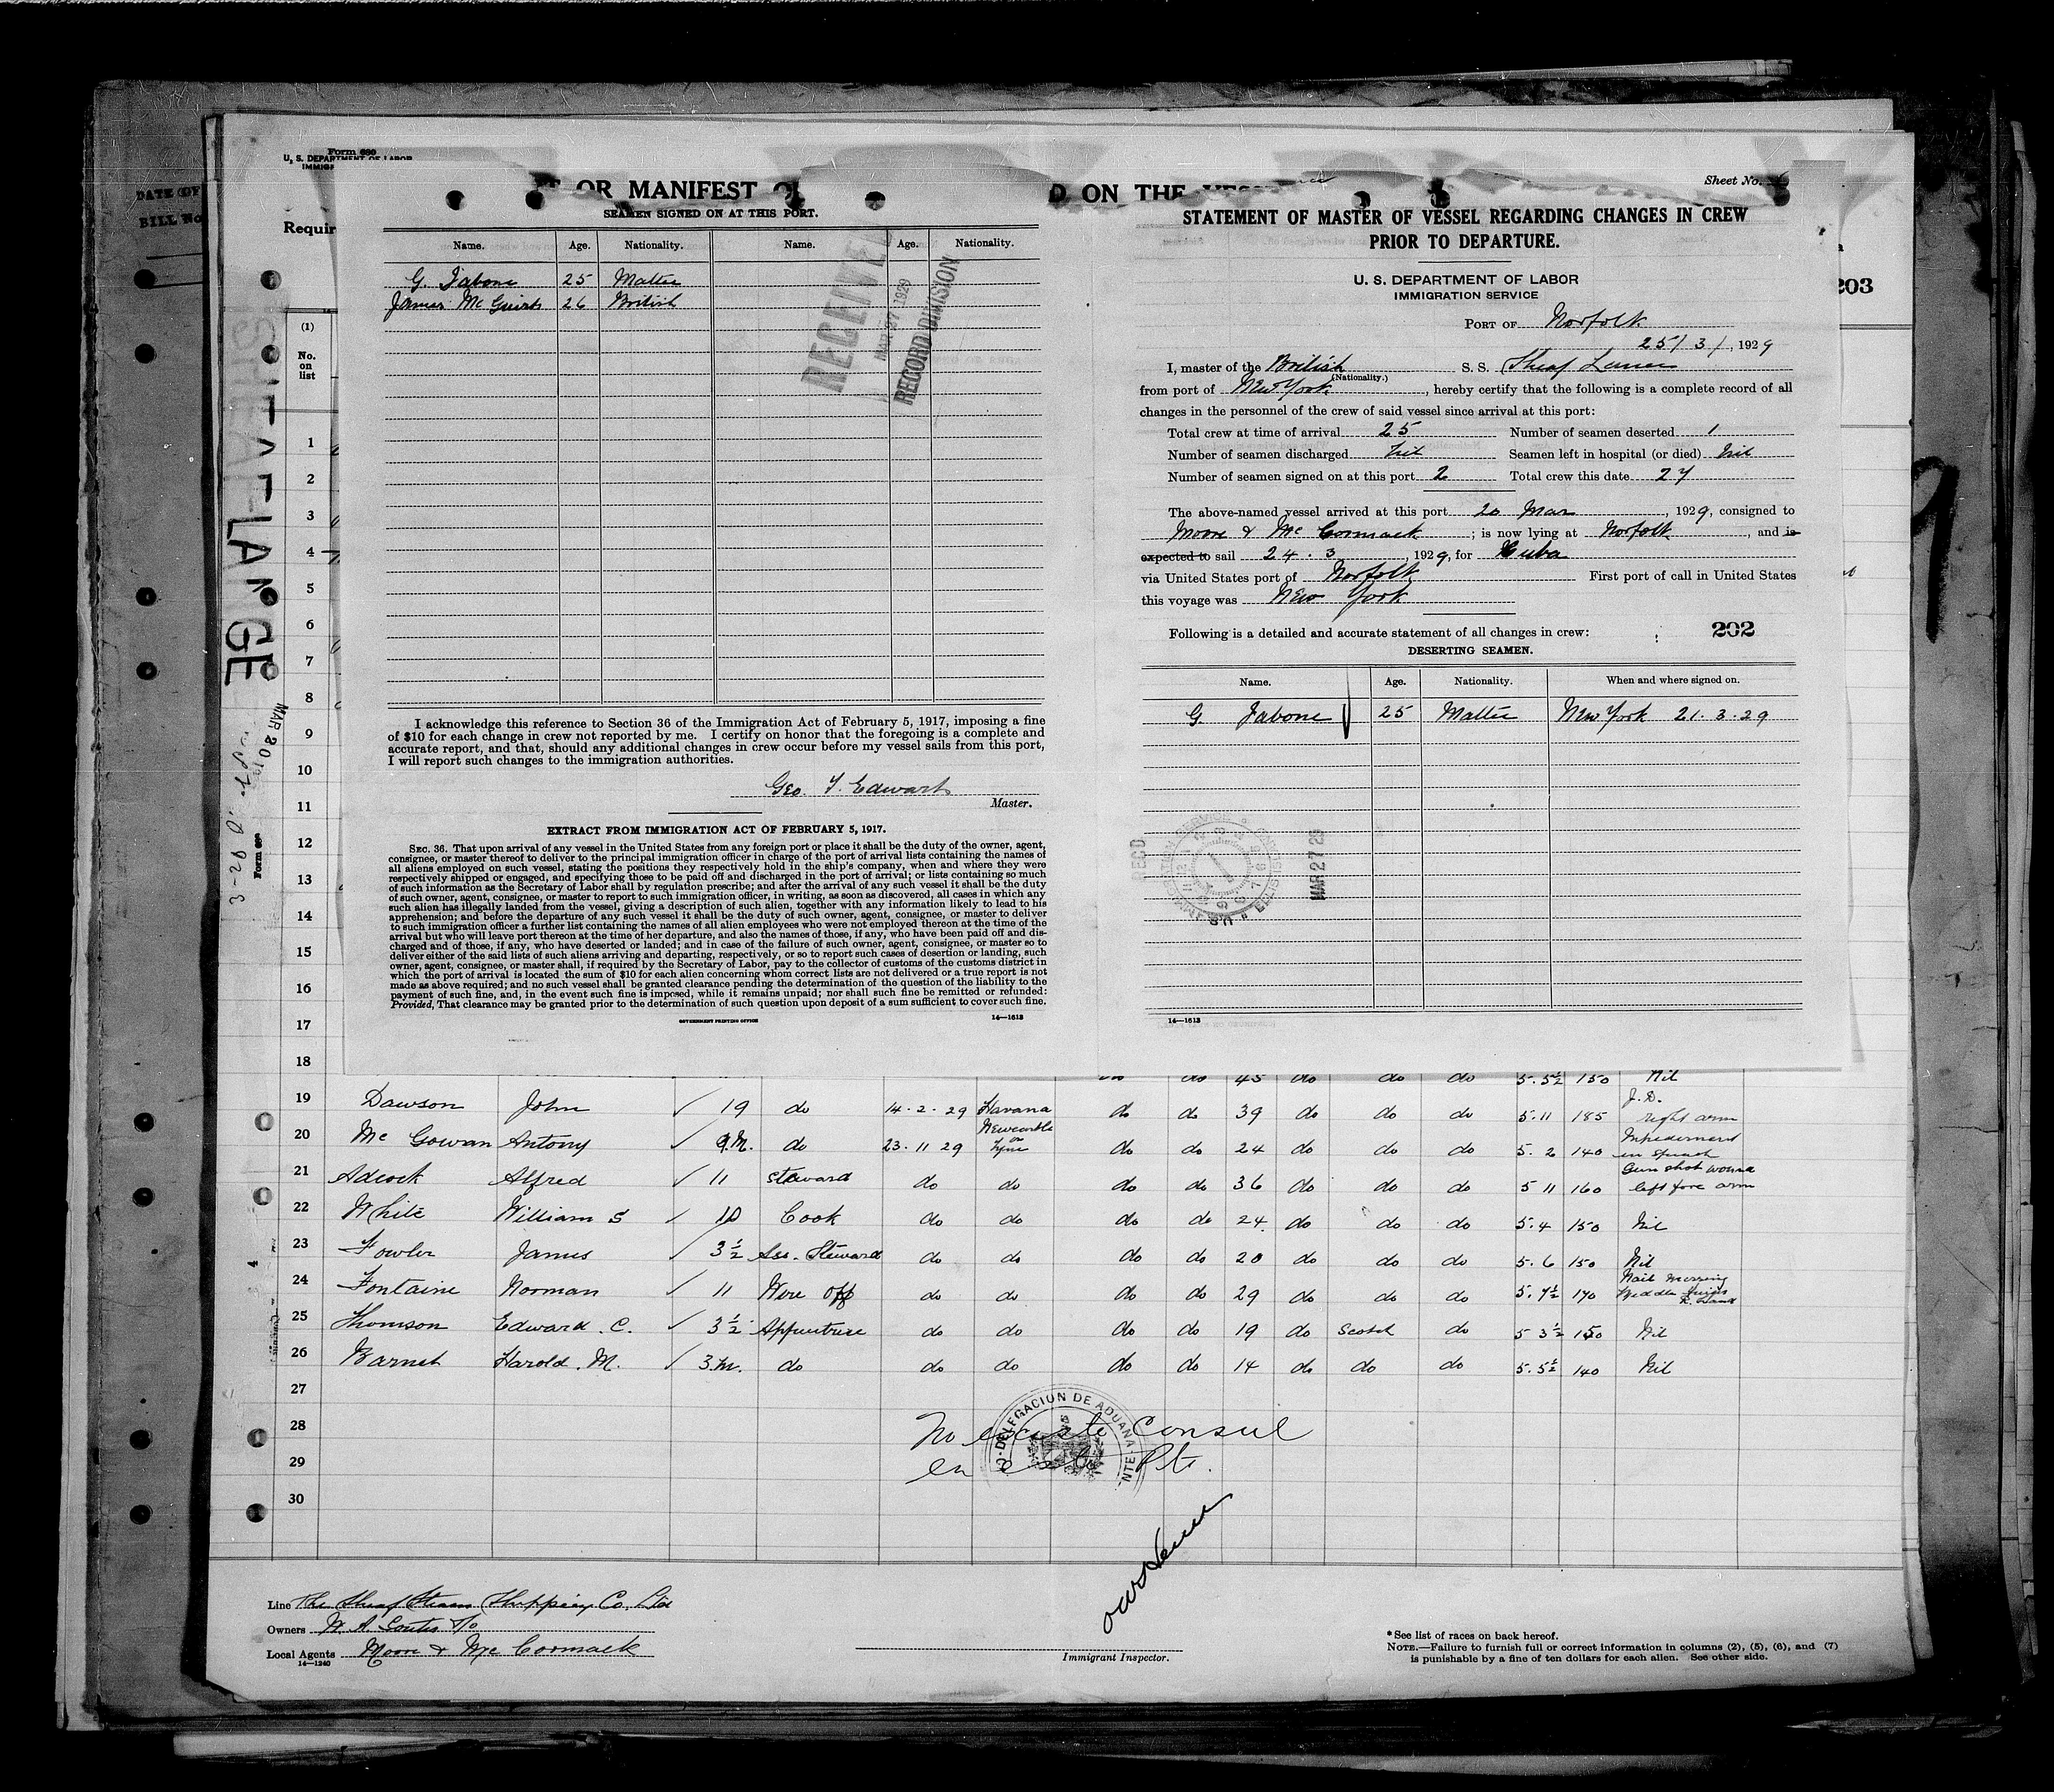 DATE OF
BILL No
Form 680
U. S. DEPARTMENT OF LABOR
OR MANIFEST
D ON THE
Sheet No.
Requir
203
(1)
No.
on
list
SHEAF LANCE
MAR 20
SEAMEN SIGNED ON AT THIS PORT.
Name. Age. Nationality. Name. Age. Nationality.
G. Tabone 25 Maltee
James McGuirk 26 British
RECEIVED
MAR 27 1929
RECORD DIVISION
I acknowledge this reference to Section 36 of the Immigration Act of February 5, 1917, imposing a fine
of $10 for each change in crew not reported by me. I certify on honor that the foregoing is a complete and
accurate report, and that, should any additional changes in crew occur before my vessel sails from this port,
I will report such changes to the immigration authorities.
Geo. T. Edwards
Master.
EXTRACT FROM IMMIGRATION ACT OF FEBRUARY 5, 1917.
SEC. 36. That upon arrival of any vessel in the United States from any foreign port or place it shall be the duty of the owner, agent,
consignee, or master thereof to deliver to the principal immigration officer in charge of the port of arrival lists containing the names of
all aliens employed on such vessel, stating the positions they respectively hold in the ship's company, when and where they were
respectively shipped or engaged, and specifying those to be paid off and discharged in the port of arrival; or lists containing so much
of such information as the Secretary of Labor shall by regulation prescribe; and after the arrival of any such vessel it shall be the duty
of such owner, agent, consignee, or master to report to such immigration officer, in writing, as soon as discovered, all cases in which any
such alien has illegally landed from the vessel, giving a description of such alien, together with any information likely to lead to his
apprehension; and before the departure of any such vessel it shall be the duty of such owner, agent, consignee, or master to deliver
to such immigration officer a further list containing the names of all alien employees who were not employed thereon at the time of the
arrival but who will leave port thereon at the time of her departure, and also the names of those, if any, who have been paid off and dis-
charged and of those, if any, who have deserted or landed; and in case of the failure of such owner, agent, consignee, or master so to
deliver either of the said lists of such aliens arriving and departing, respectively, or so to report such cases of desertion or landing, such
owner, agent, consignee, or master shall, if required by the Secretary of Labor, pay to the collector of customs of the customs district in
which the port of arrival is located the sum of $10 for each alien concerning whom correct lists are not delivered or a true report is not
made as above required; and no such vessel shall be granted clearance pending the determination of the question of the liability to the
payment of such fine, and, in the event such fine is imposed, while it remains unpaid; nor shall such fine be remitted or refunded:
Provided, That clearance may be granted prior to the determination of such question upon deposit of a sum sufficient to cover such fine.
GOVERNMENT PRINTING OFFICE 14—1613
STATEMENT OF MASTER OF VESSEL REGARDING CHANGES IN CREW
PRIOR TO DEPARTURE.
U. S. DEPARTMENT OF LABOR
IMMIGRATION SERVICE
PORT OF Norfolk
25/3/, 1929
I, master of the British S. S. Sheaf Lance
(Nationality.)
from port of New York, hereby certify that the following is a complete record of all
changes in the personnel of the crew of said vessel since arrival at this port:
Total crew at time of arrival 25 Number of seamen deserted 1
Number of seamen discharged Nil Seamen left in hospital (or died) Nil
Number of seamen signed on at this port 2 Total crew this date 27
The above-named vessel arrived at this port 20 Mar, 1929, consigned to
Moore & McCormack; is now lying at Norfolk, and is
expected to sail 24.3, 1929, for Cuba
via United States port of Norfolk First port of call in United States
this voyage was New York
Following is a detailed and accurate statement of all changes in crew: 202
DESERTING SEAMEN.
Name. Age. Nationality. When and where signed on.
G Tabone 25 Maltee New York 21.3.29
REC'D
MAR 27 29
14—1613
1
2
3
4
5
6
7
8
9
10
11
12
13
14
15
16
17
18 do do 45 do do do 5.5½ 150 Nil
19 Dawson John 19 do 14.2.29 Havana do do 39 do do do 5.11 185 J.D. right arm
20 McGowan Antony 9.M. do 23.11 29 Newcastle on Tyne do do 24 do do do 5.2 140 Impediment in speech
21 Adcock Alfred 11 Steward do do do do 36 do do do 5 11 160 Gun shot wound left fore arm
22 White William S 10 Cook do do do do 24 do do do 5.4 150 Nil
23 Fowler James 3½ Ass. Steward do do do do 20 do do do 5.6 150 Nil
24 Fontaine Norman 11 Wire Opp do do do do 29 do do do 5.7½ 170 Nail missing Middle finger R. Hand
25 Thomson Edward. C. 3½ Apprentice do do do do 19 do Scotch do 5 3½ 150 Nil
26 Barnet Harold. M. 3.m. do do do do do 14 do do do 5.5½ 140 Nil
27
28
29
30
DELEGACION DE ADUANA
No existe Consul
en este Pto.
Line The Sheaf Steam Shipping Co. Ltd
Owners W. A. Souter & Co
Local Agents Moore & McCormack
14—1240
Immigrant Inspector.
* See list of races on back hereof.
NOTE.—Failure to furnish full or correct information in columns (2), (5), (6), and (7)
is punishable by a fine of ten dollars for each alien. See other side.